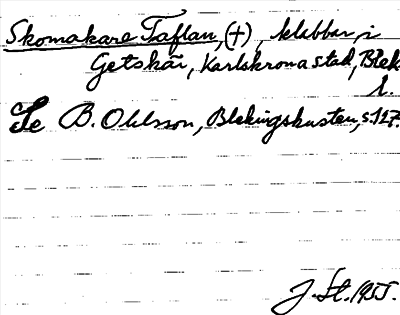 Skomakare Taflan, (+), klabbar, i
Getskär, Karlskrona stad, Blek
l.
Se B. Ohlsson, Blekingskusten, s. 127.
J. St. 1955.